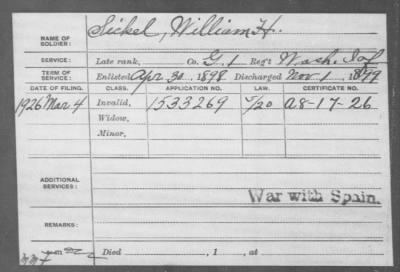 NAME OF SOLDIER: Sickel, William H.
SERVICE: Late rank, Co. G. 1 Reg't Wash. Inf
TERM OF SERVICE: Enlisted Apr. 30. 1898 Discharged Nov 1, 1899
DATE OF FILING. CLASS. APPLICATION NO. LAW. CERTIFICATE NO.
1926 Mar 4 Invalid, 1533269 A8-17-26
Widow,
Minor,
ADDITIONAL SERVICES:
War with Spain.
REMARKS:
Died , 1 , at